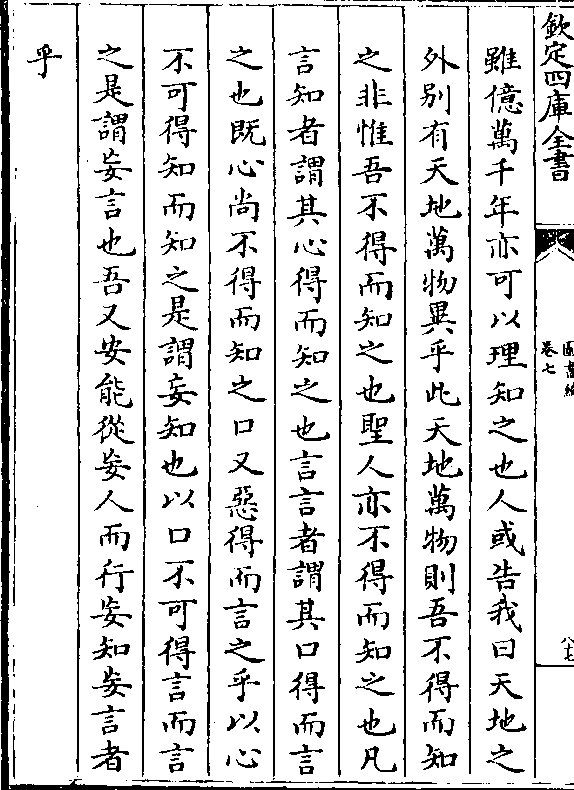 欽定四庫全書
卷七
雖億萬千年亦可以理知之也人或告我曰天地之
外別有天地萬物異乎此天地萬物則吾不得而知
之非惟吾不得而知之也聖人亦不得而知之也凡
言知者謂其心得而知之也言言者謂其口得而言
之也既心尚不得而知之口又惡得而言之乎以心
不可得知而知之是謂妄知也以口不可得言而言
之是謂妄言也吾又安能從妄人而行妄知妄言者
乎